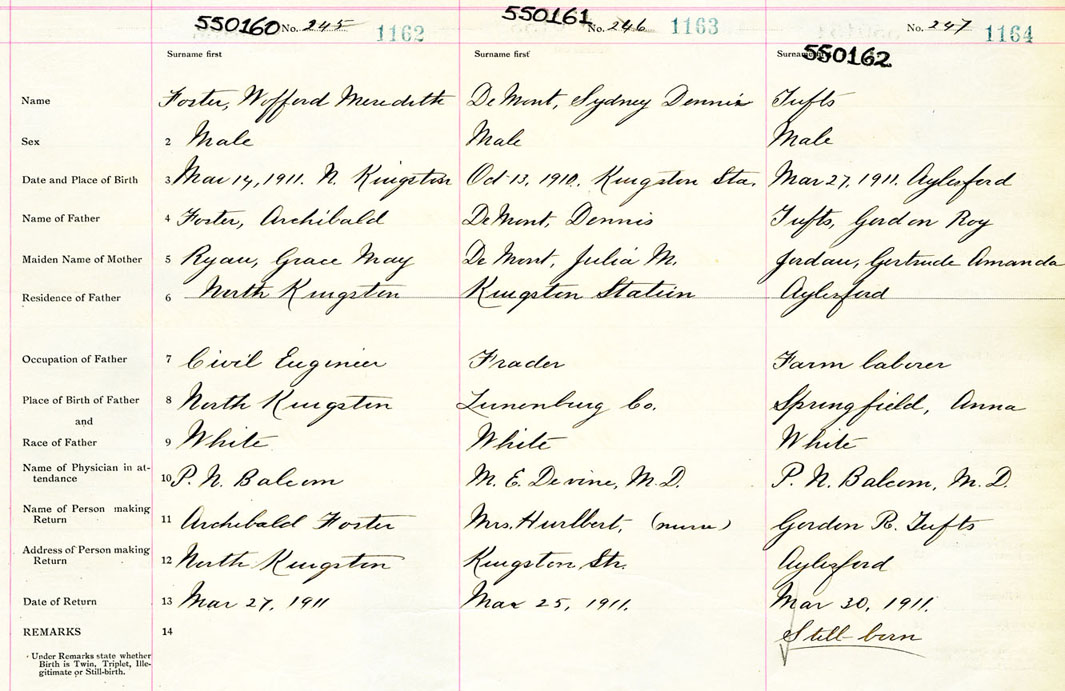 550160 No. 245 1162 550161 No. 246 1163 No. 247 1164
Surname first Surname first Surname 550162
Name Foster, Wofford Meredith De Mont, Sydney Dennis Tufts
Sex 2 Male Male Male
Date and Place of Birth 3 Mar 14, 1911. N. Kingston Oct 13, 1910. Kingston Sta. Mar 27, 1911. Aylesford
Name of Father 4 Foster, Archibald DeMont, Dennis Tufts, Gordon Roy
Maiden Name of Mother 5 Ryan, Grace May De Mont, Julia M. Jordan, Gertrude Amanda
Residence of Father 6 North Kingston Kingston Station Aylesford
Occupation of Father 7 Civil Engineer Trader Farm laborer
Place of Birth of Father 8 North Kingston Lunenburg Co. Springfield, Anna
and
Race of Father 9 White White White
Name of Physician in at-
tendance 10 P. N. Balcom M. E. Devine, M.D. P. N. Balcom, M.D.
Name of Person making
Return 11 Archibald Foster Mrs. Hurlbert, (nurse) Gordon R. Tufts
Address of Person making
Return 12 North Kingston Kingston Str. Aylesford
Date of Return 13 Mar 27, 1911 Mar 25, 1911. Mar 30, 1911.
REMARKS 14 Still-born
Under Remarks state whether
Birth is Twin, Triplet, Ille-
gitimate or Still-birth.